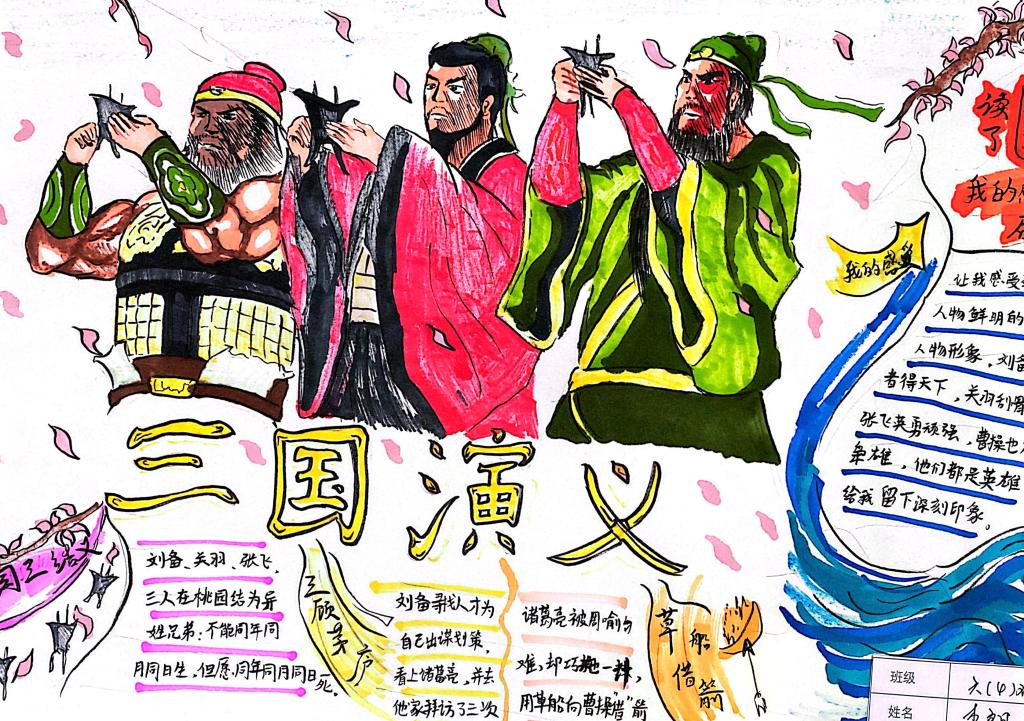 读
了
我的
我的感
让我感受
人物鲜明的
人物形象,刘备
者得天下,关羽刮骨
张飞英勇顽强,曹操也
争雄,他们都是英雄
给我留下深刻印象。
三国演义
园三结义
刘备、关羽、张飞,
三人在桃园结为异
姓兄弟:不能同年同
月同日生,但愿同年同月同日死。
三顾茅庐
刘备寻找人才为
自己出谋划策,
看上诸葛亮,并去
他家拜访了三次
诸葛亮被周瑜为
难,却巧施一计,
用草船向曹操"借"箭
草船
借箭
班级
六(4)
姓名